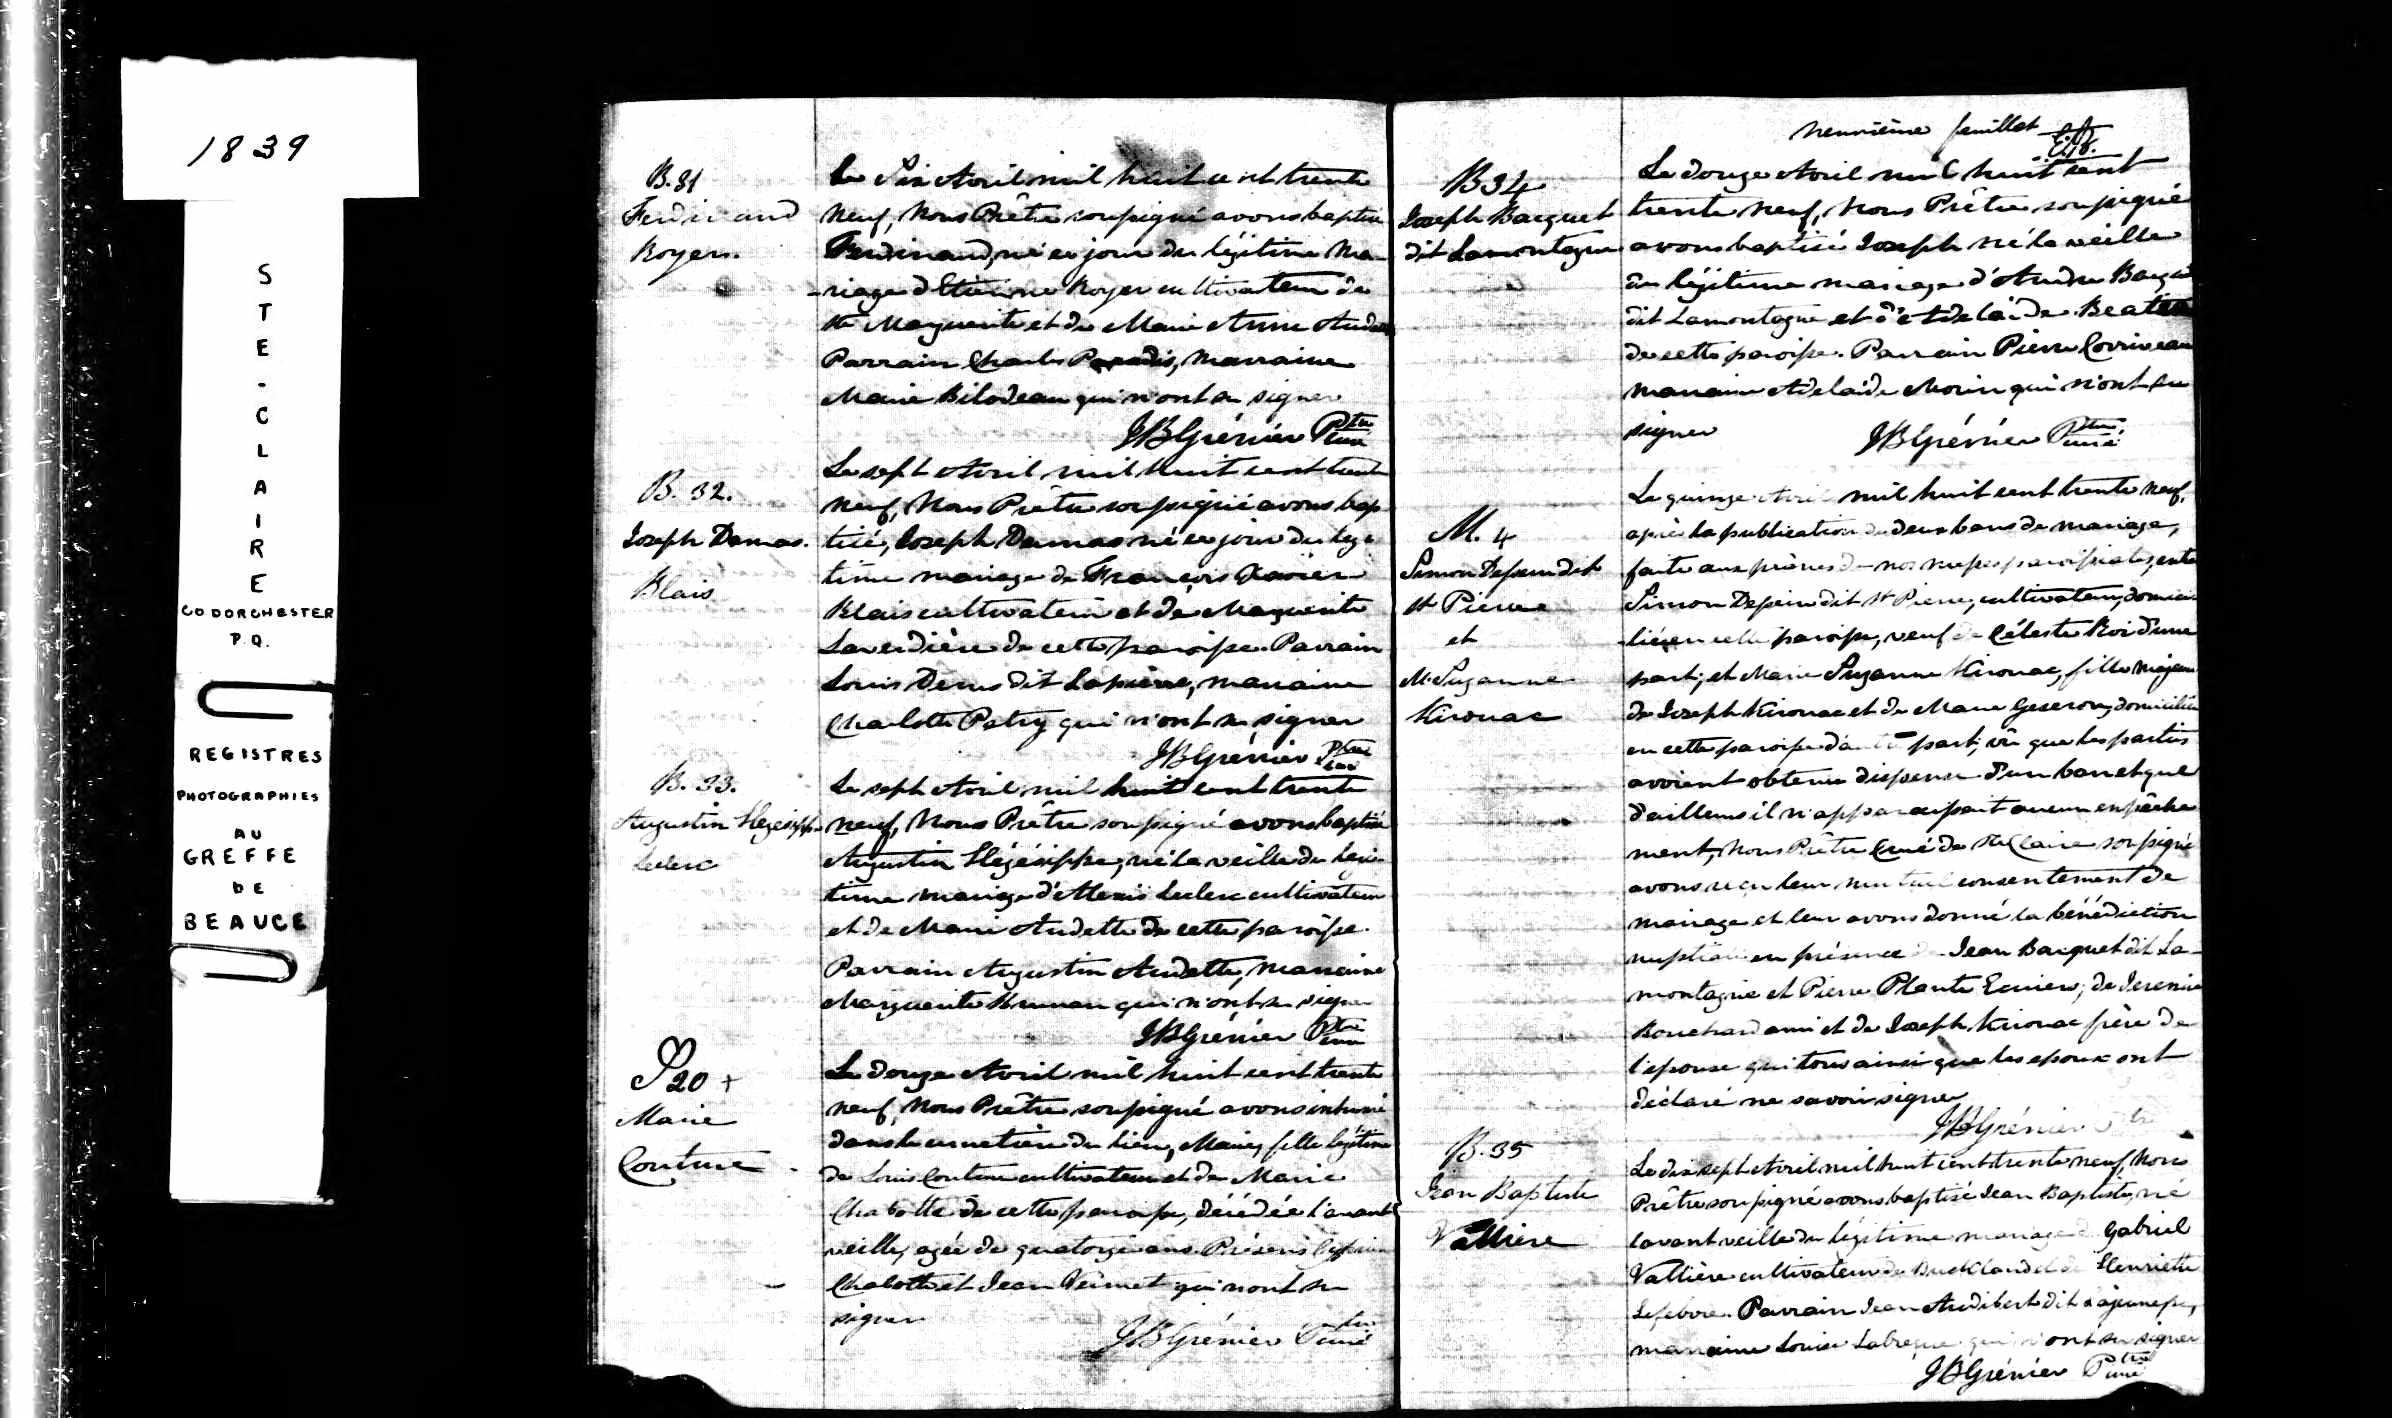 1839
STE-CLAIRE
CO DORCHESTER
P.Q.
REGISTRES
PHOTOGRAPHIES
AU
GREFFE
DE
BEAUCE
B.31
Ferdinand
Royer.
Le Six Avril mil huit cent trente
neuf, Nous Prêtre soussigné avons baptisé
Ferdinand, né ce jour du légitime ma-
-riage d'Etienne Royer cultivateur de
Ste Marguerite et de Marie Anne
Parrain Charles Paradis, marraine
Marie Bilodeau qui n'ont su signer
JBGrénier Ptre curé
B. 32.
Joseph Damas.
Blais
Le sept Avril mil huit cent trente
neuf, Nous Prêtre soussigné avons bap
tisé, Joseph Damas né ce jour du légi
time mariage de François Xavier
Blais cultivateur et de Marguerite
Laverdière de cette paroisse. Parrain
Louis Denis dit Lapierre, marraine
Charlotte Patry qui n'ont su signer
JBGrénier Ptre curé
B. 33.
Augustin Hégésippe
Leclerc
Le sept Avril mil huit cent trente
neuf, Nous Prêtre soussigné avons baptisé
Augustin Hégésippe, né la veille du légi-
time mariage d'Alexis Leclerc cultivateur
et de Marie Audette de cette paroisse.
Parrain Augustin Audette, marraine
Marguerite qui n'ont su signer
JBGrénier Ptre curé
S 20 +
Marie
Couture
Le douze Avril mil huit cent trente
neuf, Nous Prêtre soussigné avons inhumé
dans le cimetière du lieu, Marie, fille légitime
de Louis Couture cultivateur et de Marie
Chabotte de cette paroisse, décédée l'avant
veille, agée de quatorze ans. Présens
Chabotte et Jean Vermet qui n'ont su
signer
JBGrénier Ptre curé
neuvième feuillet
B34
Joseph Bacquet
dit Lamontagne
Le douze Avril mil huit cent
trente neuf, Nous Prêtre soussigné
avons baptisé Joseph né la veille
du légitime mariage d'Andre Bacquet
dit Lamontagne et d'Adelaïde
de cette paroisse. Parrain Pierre Corriveau
marraine Adelaïde Morin qui n'ont su
signer
JBGrénier Ptre curé
M. 4
Simon Depeindit
St Pierre
et
M. Suzanne
Kirouac
Le quinze Avril mil huit cent trente neuf,
après la publication de deux bans de mariage,
faite aux prônes de nos messes paroissiales, entre
Simon Depein dit St Pierre, cultivateur, domici-
-lié en cette paroisse, veuf de Céleste Roi d'une
part; et Marie Suzanne Kirouac, fille majeure
de Joseph Kirouac et de Marie Geseron, domiciliée
en cette paroisse d'autre part; vû que les parties
avoient obtenu dispense d'un ban et que
d'ailleurs il n'apparaissait aucun empêche
ment, Nous Prêtre Curé de Ste Claire soussigné
avons reçu leur mutuel consentement de
mariage et leur avons donné la bénédiction
nuptiale en présence de Jean Bacquet dit La-
montagne et Pierre Plante Ecuiers; de Jeremie
Bouchard ami et de Joseph Kirouac frère de
l'épouse qui tous ainsi que les epoux ont
déclaré ne savoir signer
JBGrénier Ptre
B. 35
Jean Baptiste
Vallière
Le dix sept Avril mil huit cent trente neuf, Nous
Prêtre soussigné avons baptisé Jean Baptiste, né
l'avant veille du légitime mariage de Gabriel
Vallière cultivateur de Buckland et de Henriette
Lefebvre. Parrain Jean Audibert dit Lajeunesse,
marraine Louise Labreque qui n'ont su signer
JBGrénier Ptre curé